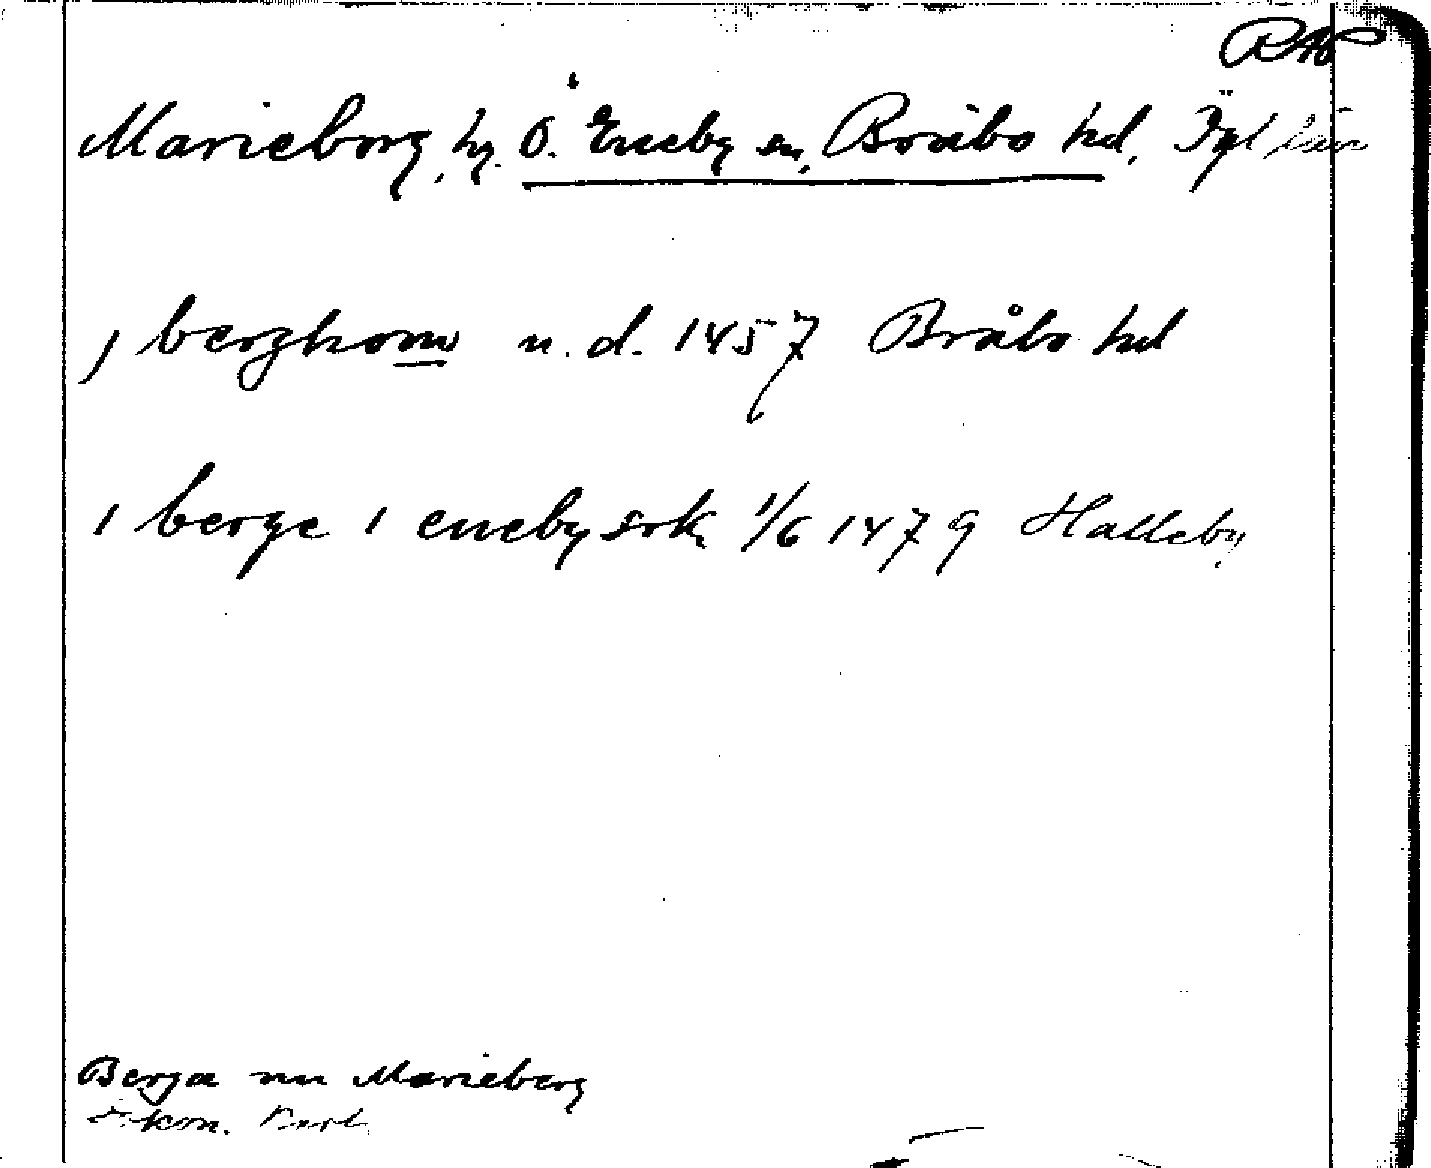 RAP
Marieborg, hg. Ö. Eneby sn, Bråbo hd, Ögl län
j berghom u. d. 1457 Bråbo hd
i berge i eneby sok 1/6 1479 Halleby
Berga nu Marieberg
ekon. Kart.